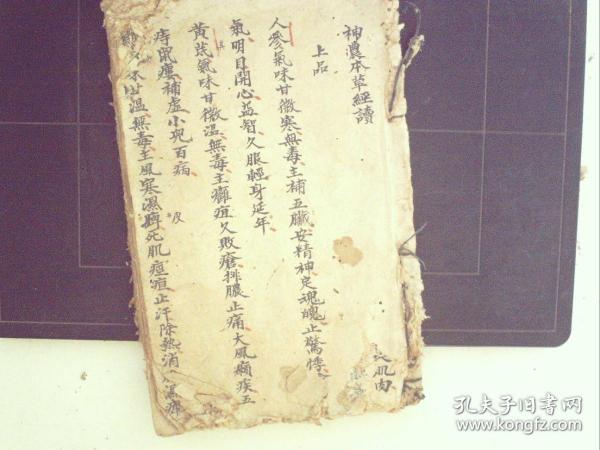 神農本草經讀
上品
人參氣味甘微寒無毒主補五臟安精神定魂魄止驚悸
氣明目開心益智久服輕身延年
黃芪氣味甘微溫無毒主癰疽久敗瘡排膿止痛大風癩疾五
痔鼠瘻補虛小兒百病
味甘溫無毒主風寒濕痺死肌痙疸止汗除熱消
皮
肌肉
孔夫子旧书网
www.kongfz.com